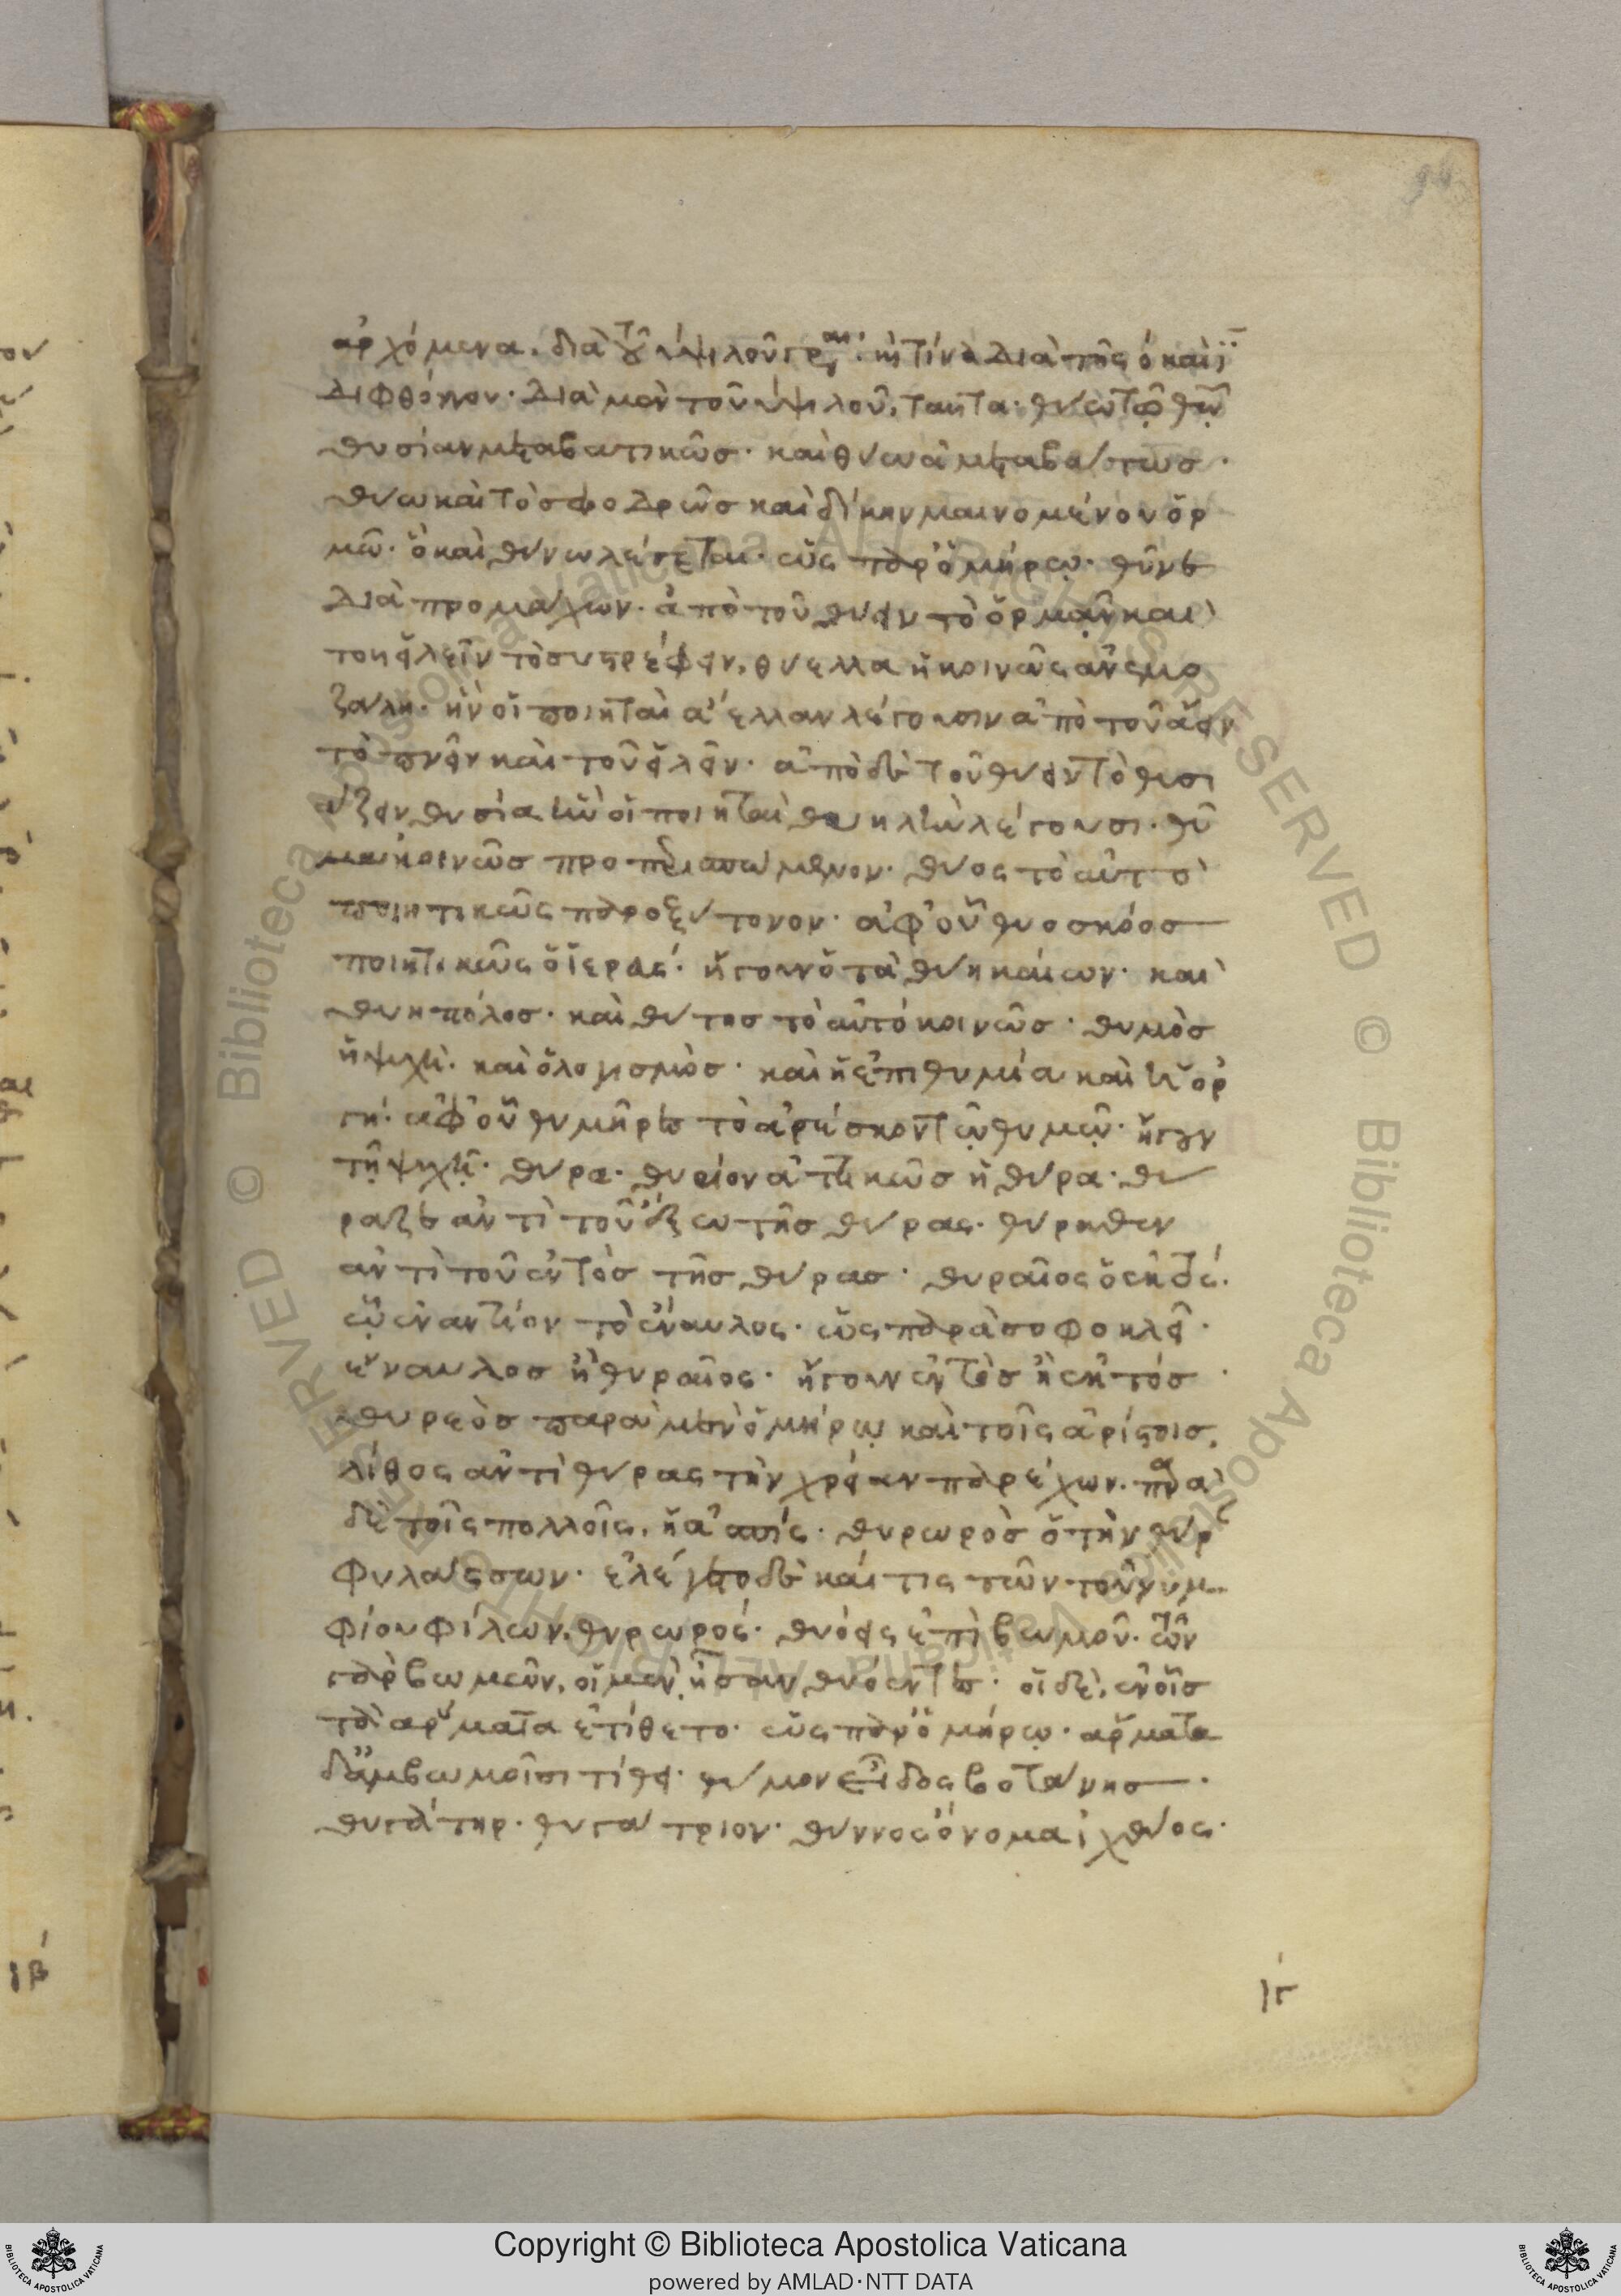 ἀρχόμενα. διὰ τοῦ ὑψιλοῦ γράφεται· ἢ τίνα διὰ τῆς ο καὶ ϊ
διφθόγγου· διὰ μὲν τοῦ ὑψιλοῦ, ταῦτα· θύω τῷ θεῷ
θυσίαν μεταβατικῶς· καὶ θύω ἀμεταβάτως·
θύω καὶ τὸ σφοδρῶς καὶ δίκην μαινομένου ὁρ
μῶ· ὃ καὶ θύνω λέγεται· ὡς παρ' ὁμήρῳ· θῦνε
διὰ προμάχων· ἀπὸ τοῦ θύειν τὸ ὁρμᾶν καὶ
τοῦ εἰλεῖν τὸ συστρέφειν, θύελλα ἡ κοινῶς ἀνεμο
ζάλη· ἣν οἱ ποιηταὶ ἄελλαν λέγουσιν ἀπὸ τοῦ ἄειν
τὸ πνεῖν καὶ τοῦ εἰλεῖν· ἀπὸ δὲ τοῦ θύειν τὸ θυσι
άζειν θυσία ἣν οἱ ποιηταὶ θυηλὴν λέγουσι· θῦ
μα κοινῶς προπερισπώμενον· θύος τὸ αὐτὸ
ποιητικῶς παροξύτονον· ἀφ' οὗ θυοσκόος
ποιητικῶς ὁ ἱερεύς· ἤγουν ὁ τὰ θύη καίων· καὶ
θυηπόλος· καὶ θύτης τὸ αὐτὸ κοινῶς· θυμὸς
ἡ ψυχή· καὶ ὁ λογισμός· καὶ ἡ ἐπιθυμία καὶ ἡ ὀρ
γή· ἀφ' οὗ θυμῆρες τὸ ἀρέσκον τῷ θυμῷ· ἤγουν
τῇ ψυχῇ· θύρα· θυρίον ἀττικῶς ἡ θύρα· θύ
ραζε ἀντὶ τοῦ ἔξω τῆς θύρας· θύρηθεν
ἀντὶ τοῦ ἐντὸς τῆς θύρας· θυραῖος ὁ ἐκτός·
ᾧ ἐναντίον τὸ ἔναυλος· ὡς παρὰ σοφοκλεῖ·
ἔναυλος ἢ θυραῖος· ἤγουν ἐντὸς ἢ ἐκτός·
θυρεὸς παρὰ μὲν ὁμήρῳ καὶ τοῖς ἀρίστοις,
λίθος ἀντὶ θύρας τὴν χρείαν παρέχων· παρὰ
δὲ τοῖς πολλοῖς, ἡ ἀσπίς· θυρωρὸς ὁ τὴν θύραν
φυλάσσων· ἐλέγετο δὲ καί τις τῶν τοῦ νυμ
φίου φίλων, θυρωρός· θυόεις ἐπὶ βωμοῦ· τῶν
γὰρ βωμῶν, οἱ μὲν ἦσαν θυόεντες· οἱ δὲ, ἐν οἷς
τὰ ἅρματα ἐτίθετο· ὡς παρ' ὁμήρῳ· ἅρματα
δ' ἂμ βωμοῖσι τίθει· θύμον εἶδος βοτάνης·
θυγάτηρ· θυγάτριον· θύννος ὄνομα ἰχθύος·
ιγ
ιβ
Copyright © Biblioteca Apostolica Vaticana
powered by AMLAD·NTT DATA